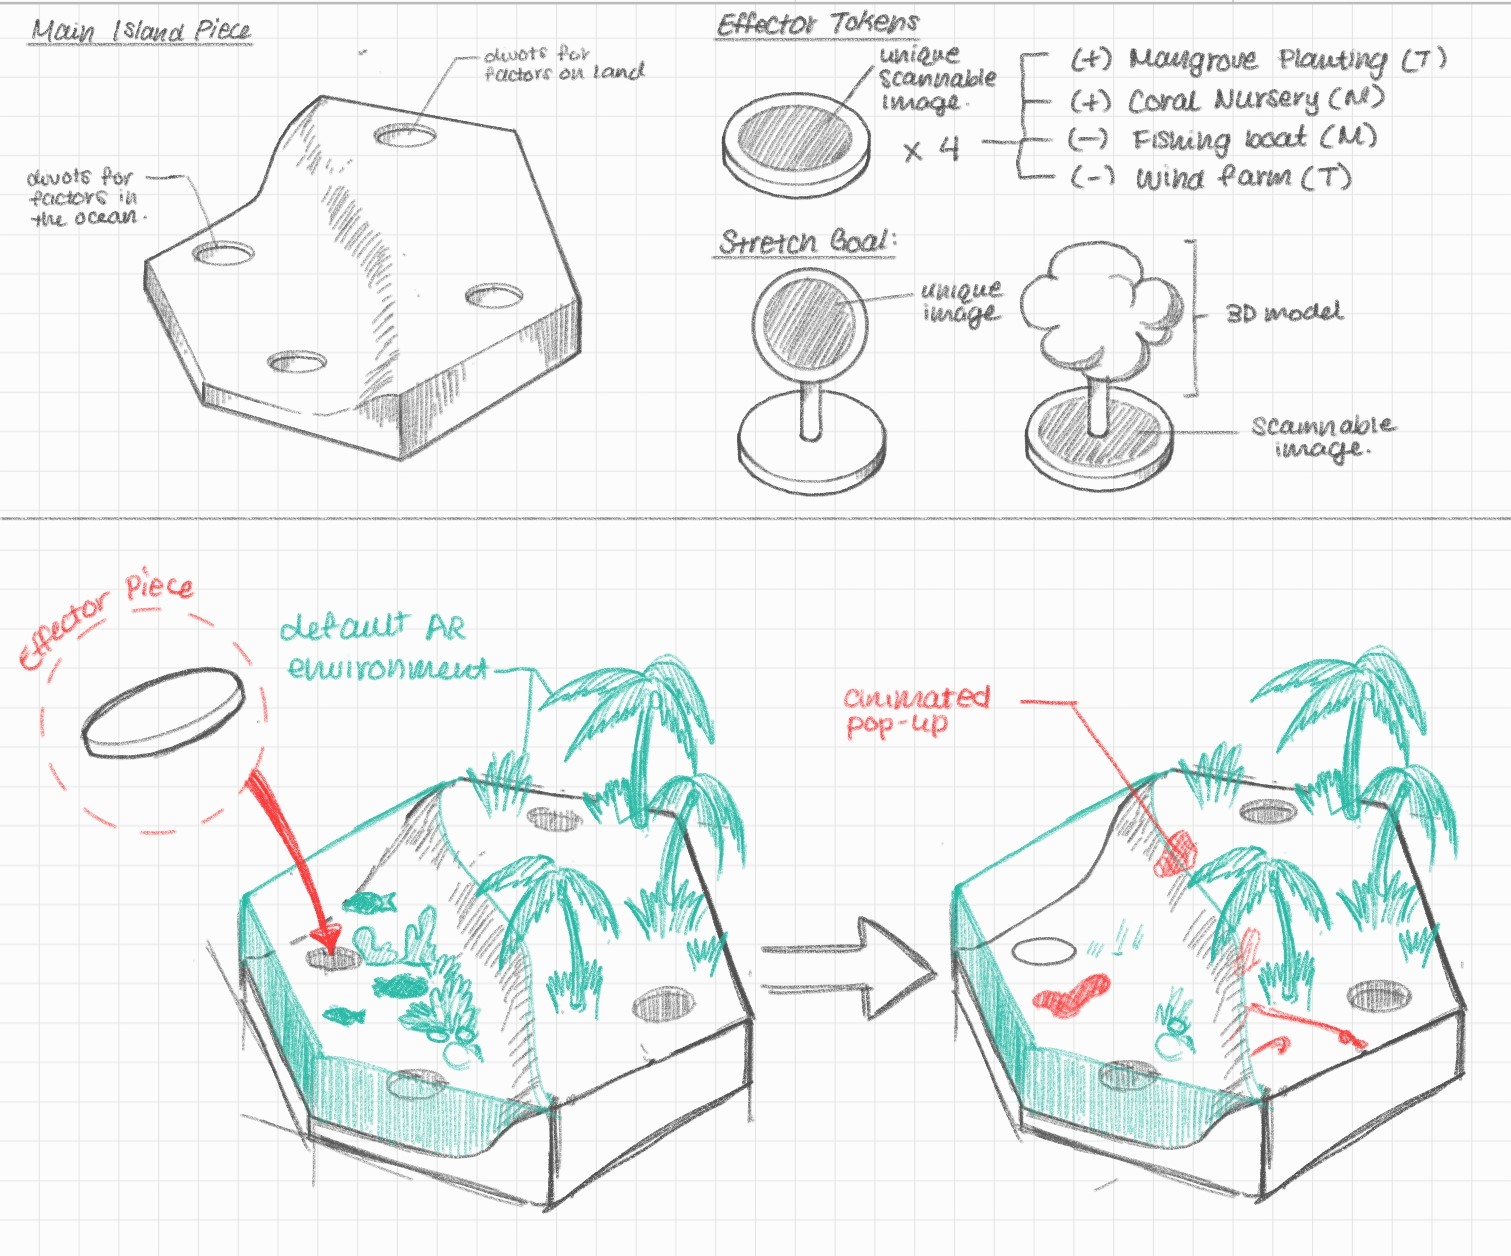 Main Island Piece
divots for
factors on land
divots for
factors in
the ocean.
Effector Tokens
unique
scannable
image.
x 4
(+) Mangrove Planting (T)
(+) Coral Nursery (M)
(-) Fishing boat (M)
(-) Wind farm (T)
Stretch Goal:
unique
image
3D model
scannable
image.
Effector Piece
default AR
environment
animated
pop-up